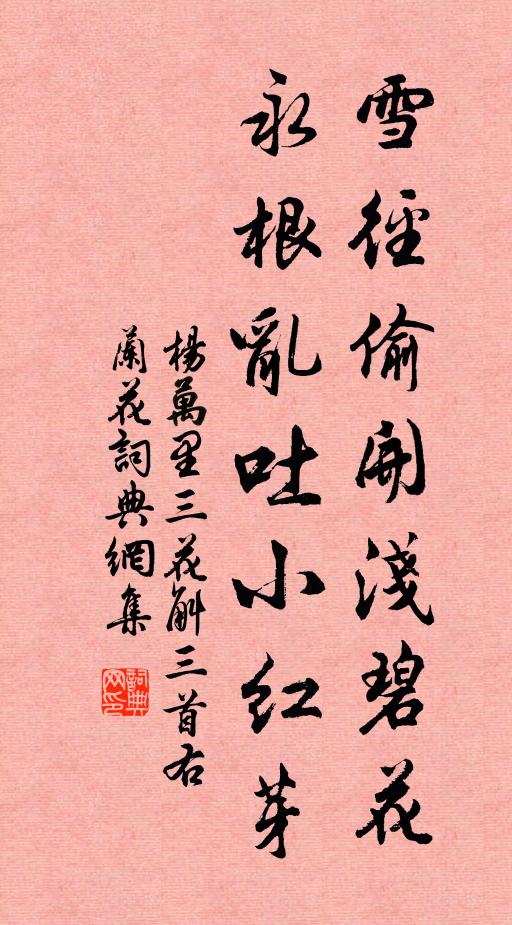 雪徑偷開淺碧花
冰根亂吐小紅芽
楊萬里三花斛三首右
蘭花詞典網集
詞典
网印